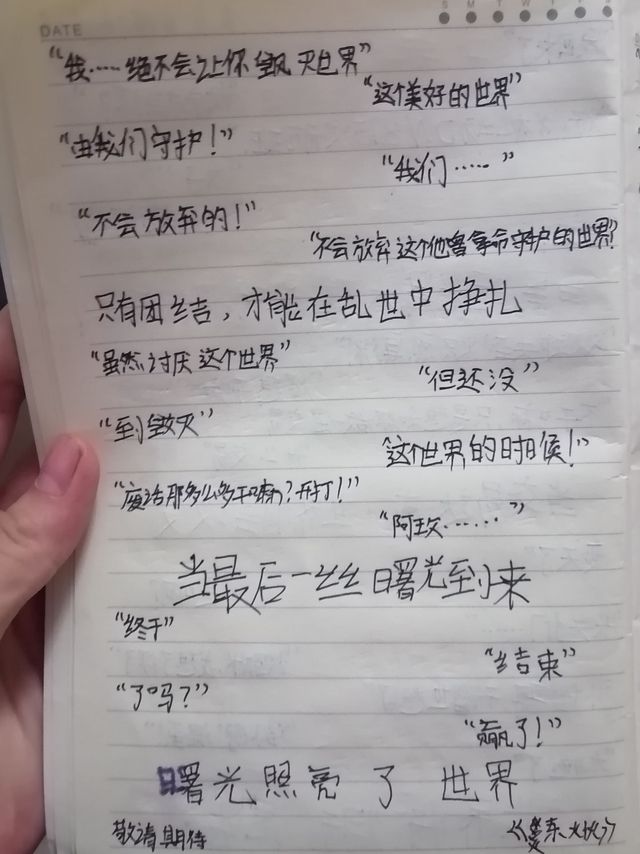 DATE
S M T W T F S
“我……绝不会让你毁灭世界”
“这个美好的世界”
“由我们守护！”
“我们……”
“不会放弃的！”
“不会放弃这个他曾拿命守护的世界！”
只有团结，才能在乱世中挣扎
“虽然讨厌这个世界”
“但还没”
“到毁灭”
这个世界的时候！”
“废话那多么多干嘛？开打！”
“阿玟……”
当最后一丝曙光到来
“终于”
“结束”
“了吗？”
“赢了！”
曙光照亮了世界
敬请期待